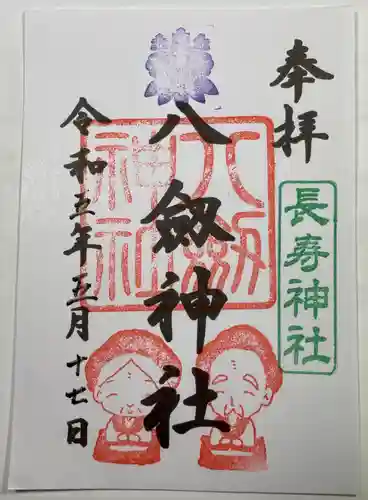 奉拝
長寿神社
八劔神社
八劔神社
令和五年五月十七日